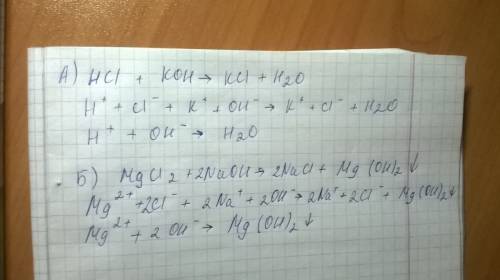 А) HCl + KOH → KCl + H2O
H⁺ + Cl⁻ + K⁺ + OH⁻ → K⁺ + Cl⁻ + H2O
H⁺ + OH⁻ → H2O
Б) MgCl2 + 2NaOH → 2NaCl + Mg(OH)2↓
Mg²⁺ + 2Cl⁻ + 2Na⁺ + 2OH⁻ → 2Na⁺ + 2Cl⁻ + Mg(OH)2↓
Mg²⁺ + 2OH⁻ → Mg(OH)2↓